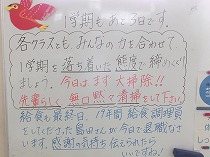 1学期もあと3日です。
各クラスとも、みんなの力を合わせて、
1学期を落ち着いた態度で締めくくり
ましょう。今日はまず大掃除!!
先輩らしく無口黙々清掃をして下さい
給食も最終日。17年間給食調理員
をしてくださった島田さんが今日で退職なさ
います。感謝の気持ち伝えられたら
いいですね。